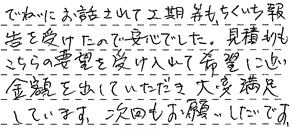 でねいにお話されて工期等もちくいち報
告を受けたので安心でした。見積りも
こちらの要望を受け入れて希望に近い
金額を出していただき大変満足
しています。次回もお願いしたいです。